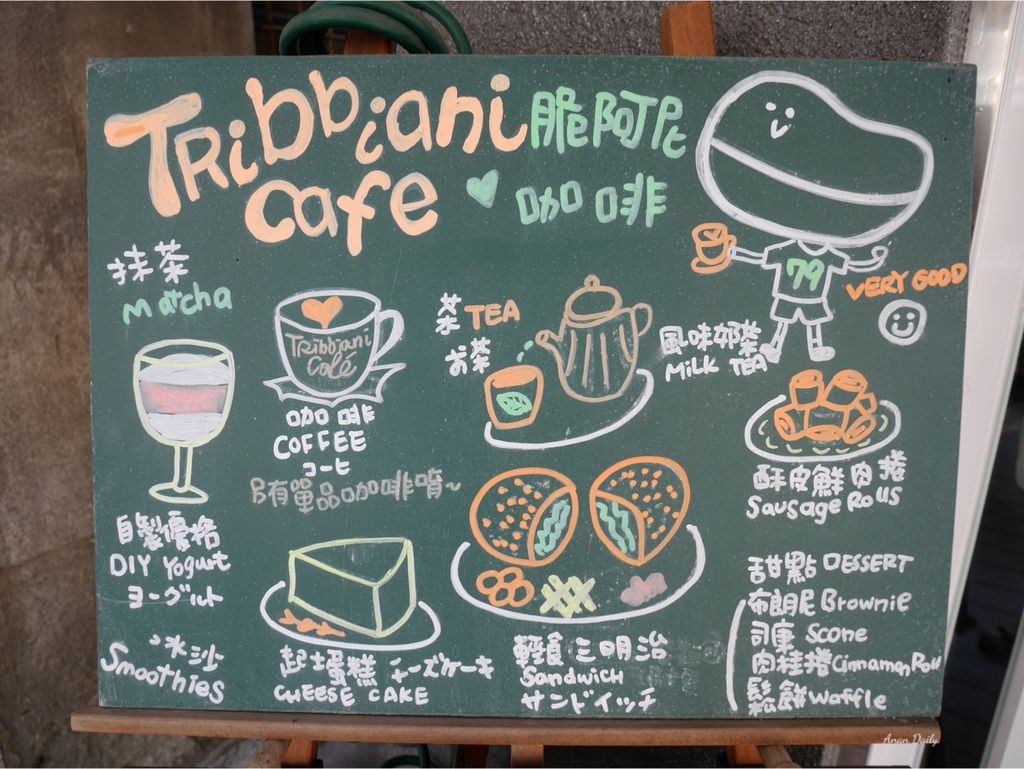 Tribbiani
cafe
脆阿北
咖啡
79
VERY GOOD
抹茶
Matcha
Tribbiani
Café
咖啡
COFFEE
コーヒ
另有單品咖啡唷~
茶 TEA
お茶
風味奶茶
Milk TEA
酥皮鮮肉捲
Sausage Rolls
自製優格
DIY Yogurt
ヨーグルト
冰沙
Smoothies
起士蛋糕 チーズケーキ
CHEESE CAKE
輕食三明治
Sandwich
サンドイッチ
甜點 DESSERT
布朗尼 Brownie
司康 Scone
肉桂捲 Cinnaman Roll
鬆餅 Waffle
Anan Daily